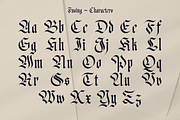 Swing – Characters
Aa Bb Cc Dd Ee Ff
Gg Hh Ii Jj Kk Ll
Mm Nn Oo Pp Qq Rr
Ss Tt Uu Vv
Ww Xx Yy Zz